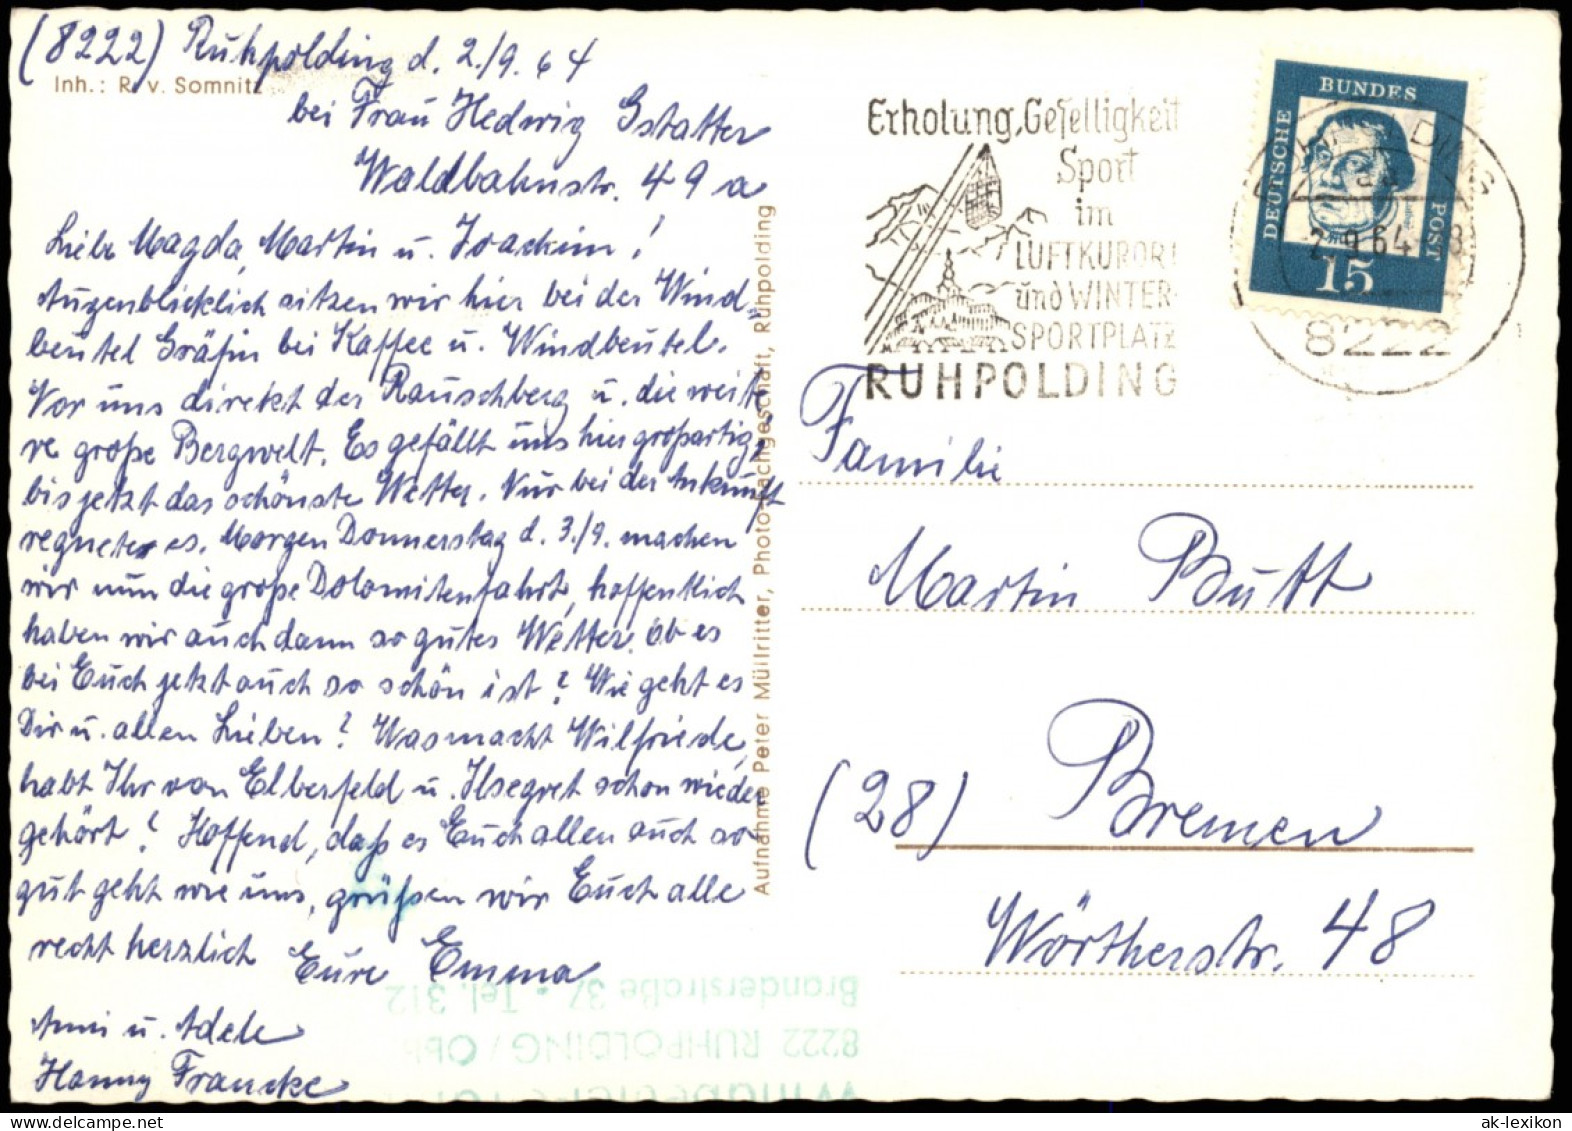 (8222) Ruhpolding d. 2./9. 64
Inh.: R. v. Somnitz
bei Frau Hedwig Gstatter
Waldbahnstr. 49 a
Liebe Magda, Martin u. Joachim!
Augenblicklich sitzen wir hier bei der Wind-
beutel Gräfin bei Kaffee u. Windbeutel.
Vor uns direkt der Rauschberg u. die weite-
re große Bergwelt. Es gefällt uns hier großartig,
bis jetzt das schönste Wetter. Nur bei der Ankunft
regnete es. Morgen Donnerstag d. 3./9. machen
wir nun die große Dolomitenfahrt, hoffentlich
haben wir auch dann so gutes Wetter. Ob es
bei Euch jetzt auch so schön ist? Wie geht es
Dir u. allen Lieben? Was macht Wilfriede,
habt Ihr von Elberfeld u. Ilsegret schon wieder
gehört? Hoffend, daß es Euch allen auch so
gut geht wie uns, grüßen wir Euch alle
recht herzlich Eure Emma
Anni u. Adele
Hanny Francke
Aufnahme Peter Müllritter, Photo-Fachgeschäft, Ruhpolding
Erholung, Geselligkeit
Sport
im
LUFTKURORT
und WINTER-
SPORTPLATZ
RUHPOLDING
DEUTSCHE
BUNDES
POST
15
2.9.64
8222
Familie
Martin Butt
(28) Bremen
Wörtherstr. 48
Branderstraße 37 - Tel. 312
8222 RUHPOLDING / Obb
ak-lexikon.com